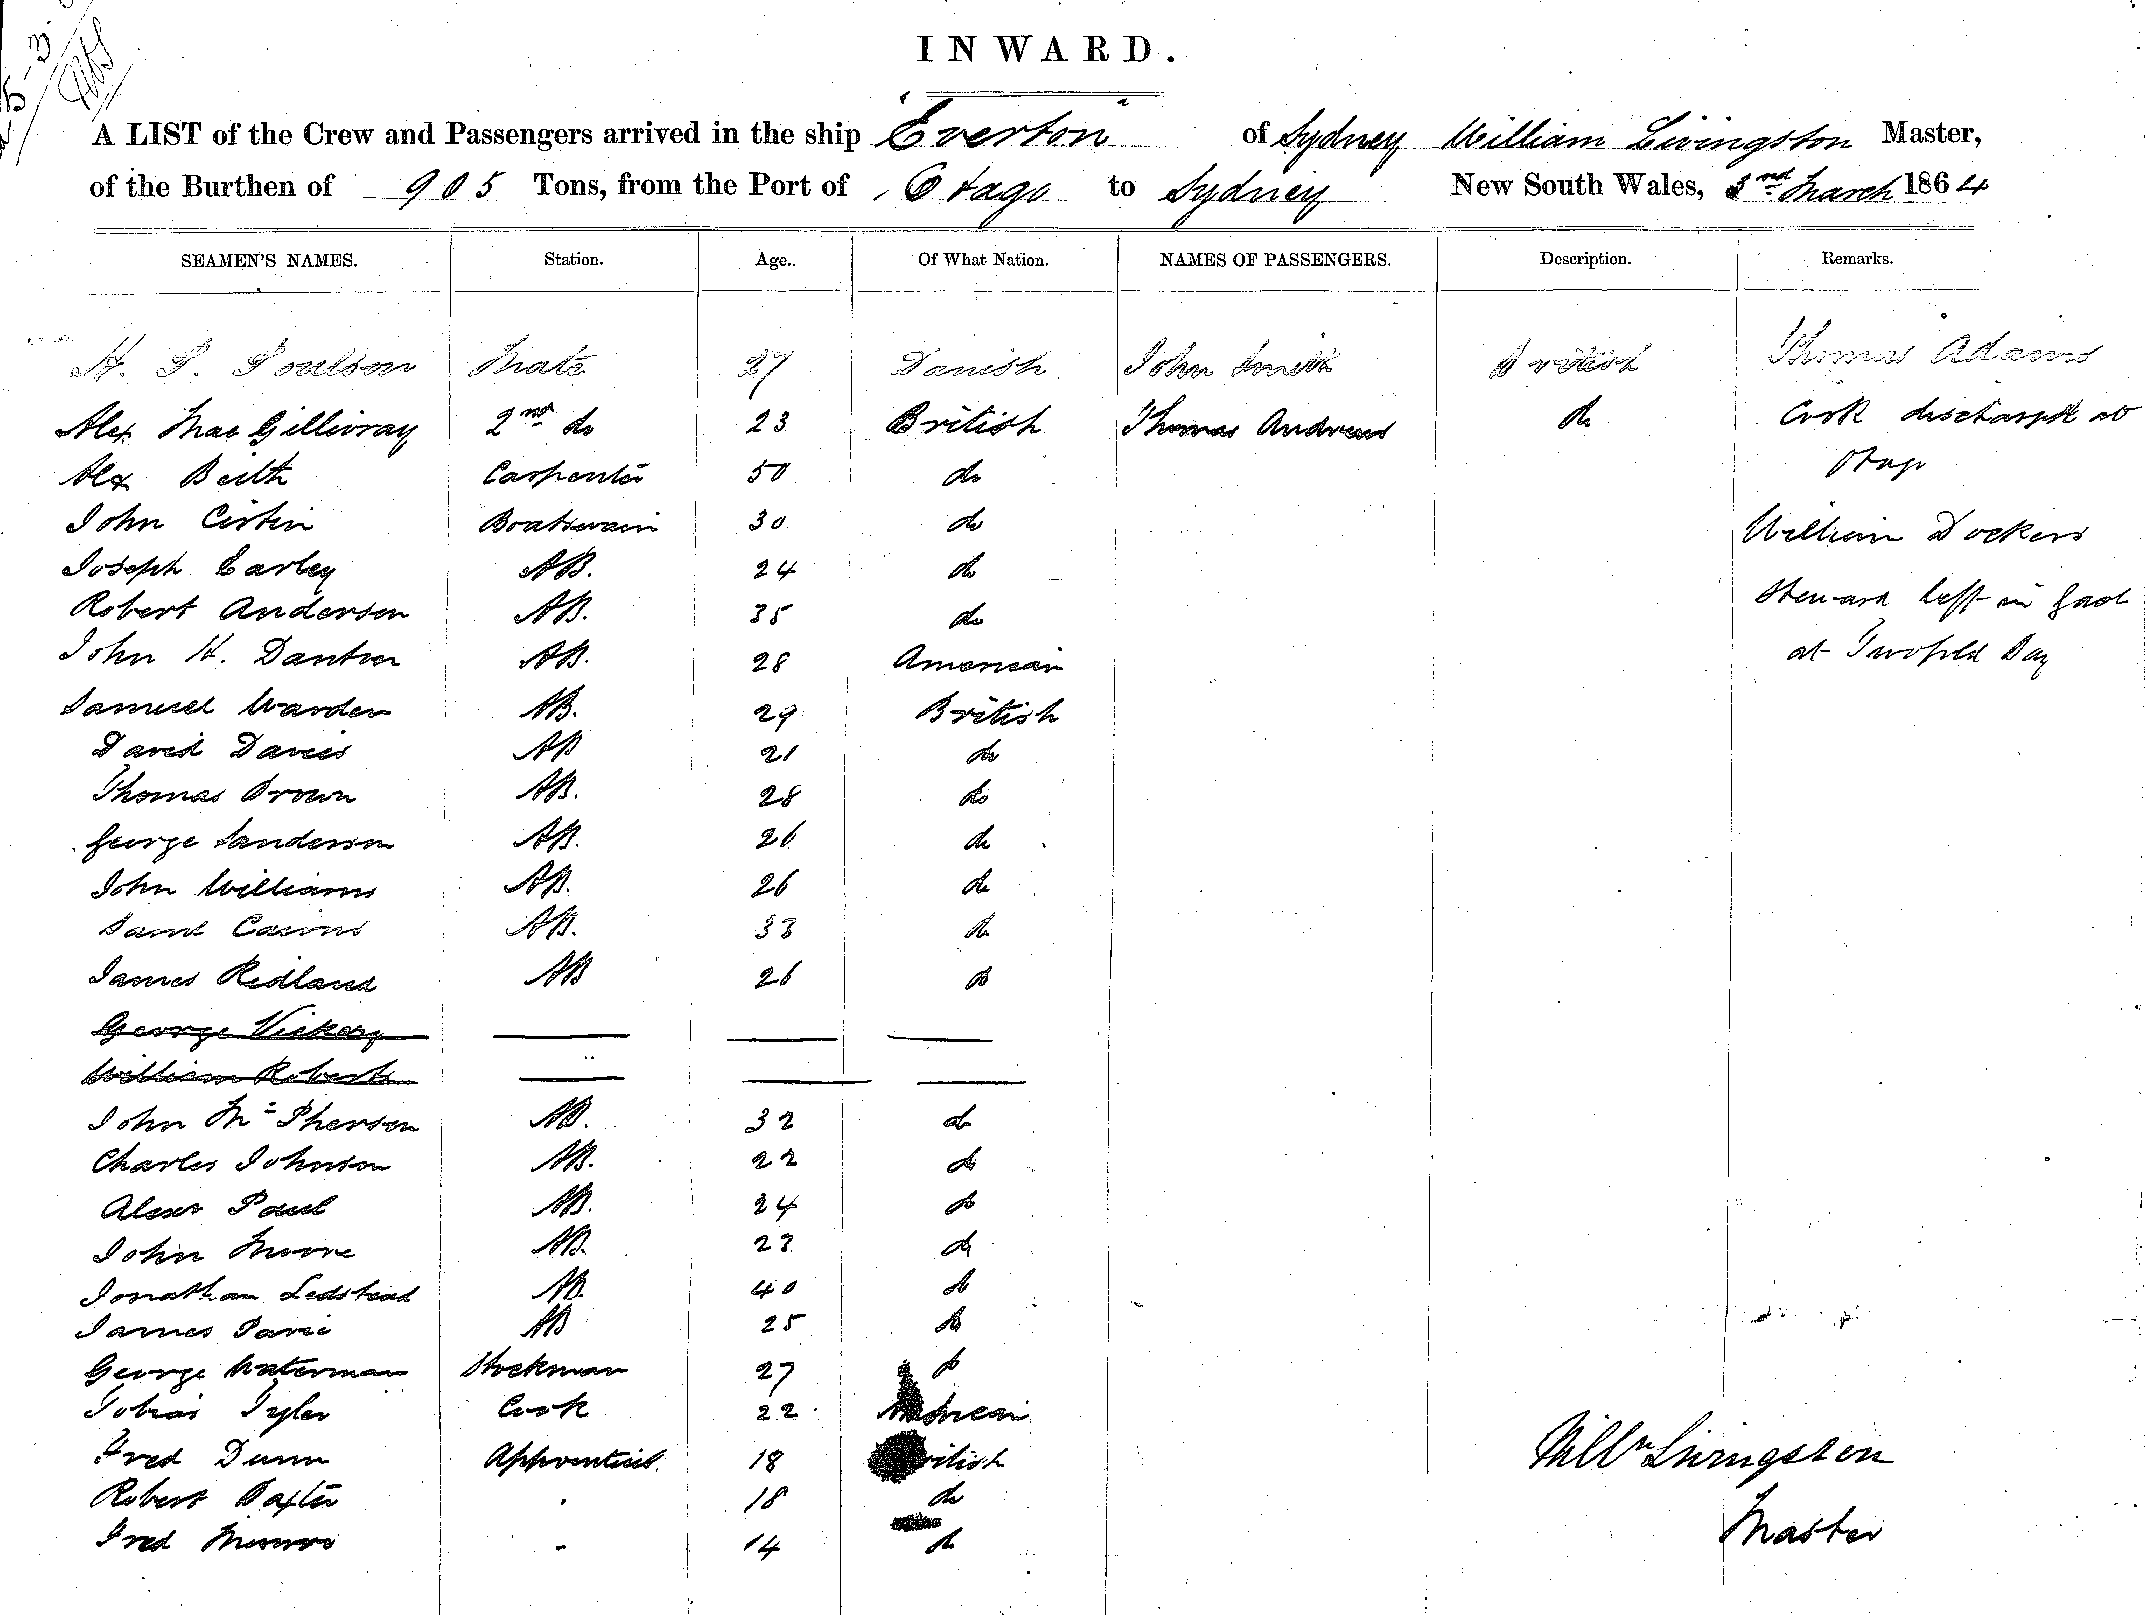 INWARD.
A LIST of the Crew and Passengers arrived in the ship Everton of Sydney William Livingston Master,
of the Burthen of 905 Tons, from the Port of Otago to Sydney New South Wales, 3rd March 1864
SEAMEN'S NAMES. Station. Age. Of What Nation. NAMES OF PASSENGERS. Description. Remarks.
H. P. Poulson Mate 27 Danish John Smith British Thomas Adams
Alex MacGillivray 2nd do 23 British Thomas Andrews do Cook discharged at
Alex Beith Carpenter 50 do Otago
John Cirtin Boatswain 30 do William Dockers
Joseph Earley AB. 24 do
Robert Anderson AB. 35 do Steward left in Gaol
John H. Danton AB. 28 American at Twofold Bay
Samuel Warden AB. 29 British
David Davies AB 21 do
Thomas Brown AB. 28 do
George Sanderson AB. 26 do
John Williams AB. 26 do
Saml Cairns AB. 33 do
James Redland AB 26 do
George Vickery
William Roberts
John McPherson AB. 32 do
Charles Johnson AB. 22 do
Alexr Paul AB. 24 do
John Moore AB. 23 do
Jonathan Ledstead AB. 40 do
James AB 25 do
George Waterman Stockman 27 do
Tobias Tyler Cook 22 American
Fred Dunn Apprentice 18 British
Robert Baxter 18 do
Fred Munro 14 do
Willm Livingston
Master